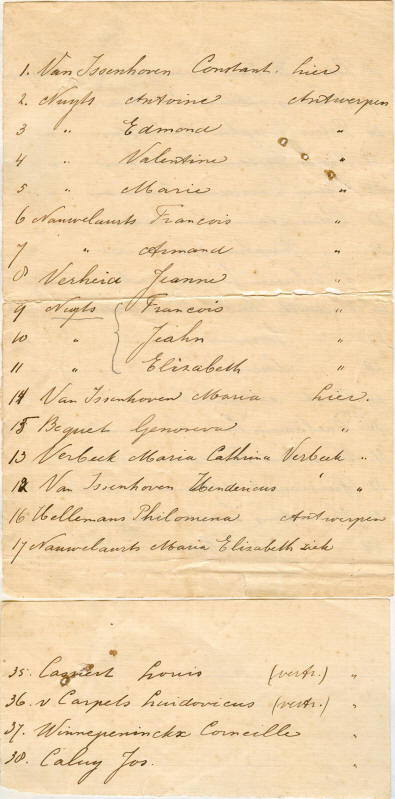 1. Van Issenhoven Constant. hier
2. Nuyts Antoine Antwerpen
3 " Edmond "
4 " Valentine "
5 " Marie "
6 Nauwelaerts Francois "
7 " Armand "
8 Verheid Jeanne "
9 Nuyts { Francois "
10 " Jeahn "
11 " Elizabeth "
14 Van Issenhoven Maria hier.
15 Bequet Genoveva "
13 Verbeek Maria Cathrina Verbeek "
12 Van Issenhoven Hendericus "
16 Hellemans Philomena Antwerpen
17 Nauwelaerts Maria Elizabeth ziek
35. Louis (vertr.) "
36. v Carpels Luidovicus (vertr.) "
37. Winnepeninckx Corneille "
38. Caluy Jos. "